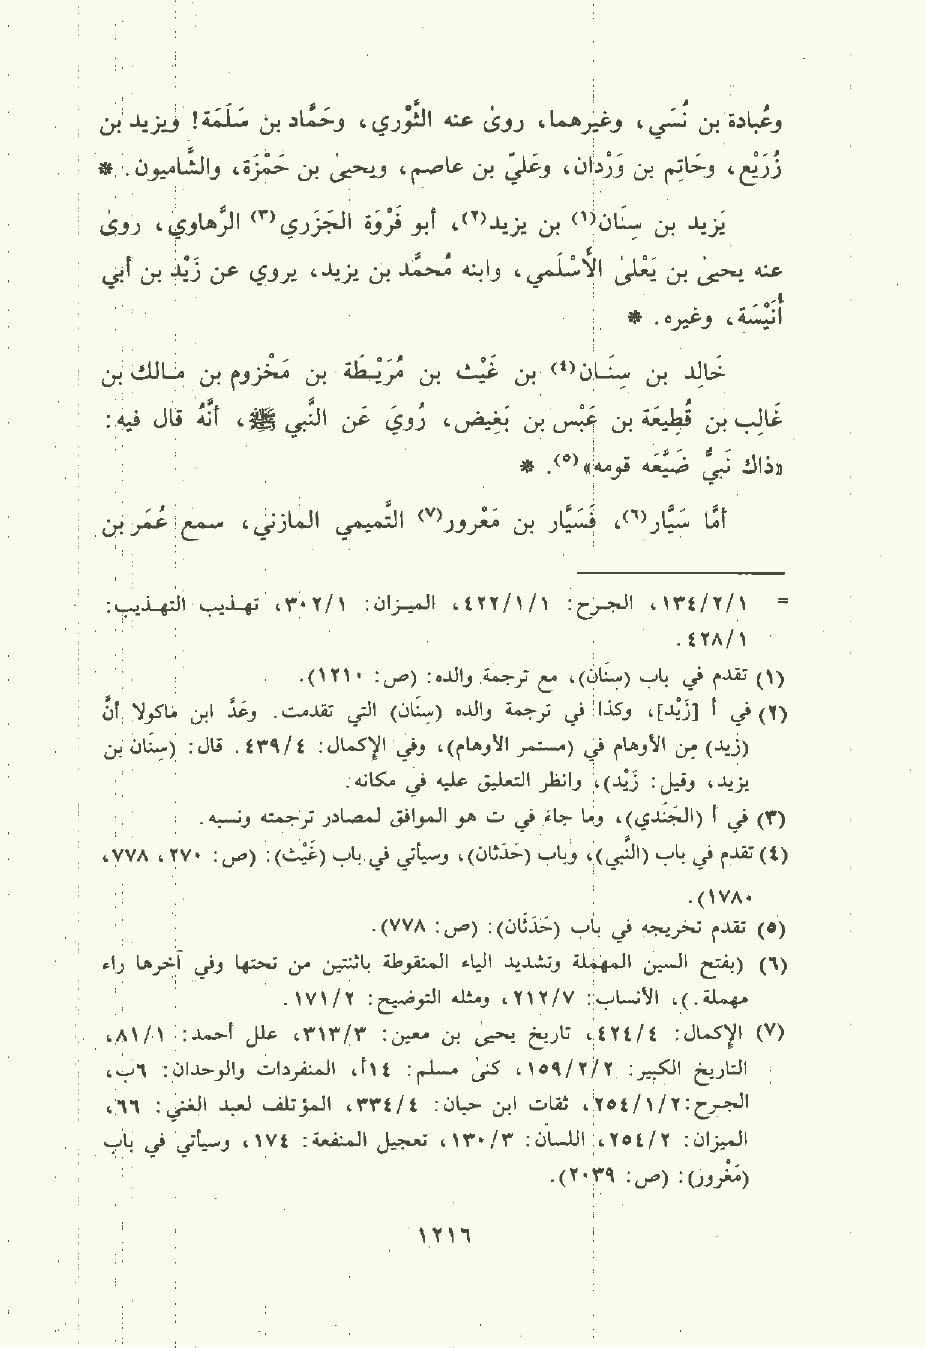 وعُبادة بن نُسَي، وغيرهما، روىٰ عنه الثَّوْري، وحَمَّاد بن سَلَمَة! ويزيد بن
زُرَيْع، وحَاتِم بن وَرْدَان، وعَليّ بن عاصم، ويحيىٰ بن حَمْزَة، والشَّاميون. *
يَزيد بن سِنَان(١) بن يزيد(٢)، أبو فَرْوَة الجَزَري(٣) الرَّهاوي، روىٰ
عنه يحيىٰ بن يَعْلىٰ الأَسْلَمي، وابنه مُحمَّد بن يزيد، يروي عن زَيْد بن أبي
أُنَيْسَة، وغيره. *
خَالِد بن سِنَـان(٤) بن غَيْث بن مُرَيْـطَة بن مَخْزوم بن مـالك بن
غَالِب بن قُطِيعَة بن عَبْس بن بَغِيض، رُويَ عَن النَّبي ﷺ، أنَّهُ قال فيه:
«ذاك نَبيٌّ ضَيَّعَه قومه»(٥). *
أمَّا سَيَّار(٦)، فَسَيَّار بن مَعْرور(٧) التَّميمي المازني، سمع عُمَر بن
= ١٣٤/٢/١، الجـرح: ٤٢٢/١/١، الميـزان: ٣٠٢/١، تهـذيب التهـذيب:
٤٢٨/١.
(١) تقدم في باب (سِنَان)، مع ترجمة والده: (ص: ١٢١٠).
(٢) في أ [زَيْد]، وكذا في ترجمة والده (سِنَان) التي تقدمت. وعَدَّ ابن ماكولا أنَّ
(زيد) من الأوهام في (مستمر الأوهام)، وفي الإكمال: ٤٣٩/٤. قال: (سِنَان بن
يزيد، وقيل: زَيْد)، وانظر التعليق عليه في مكانه.
(٣) في أ (الجَنَدي)، وما جاء في ت هو الموافق لمصادر ترجمته ونسبه.
(٤) تقدم في باب (النَّبي)، وباب (حَدَثَان)، وسيأتي في باب (غَيْث): (ص: ٢٧٠، ٧٧٨،
١٧٨٠).
(٥) تقدم تخريجه في باب (حَدَثَان): (ص: ٧٧٨).
(٦) (بفتح السين المهملة وتشديد الياء المنقوطة باثنتين من تحتها وفي آخرها راء
مهملة.)، الأنساب: ٢١٢/٧، ومثله التوضيح: ١٧١/٢.
(٧) الإكمال: ٤٢٤/٤، تاريخ يحيىٰ بن معين: ٣١٣/٣، علل أحمد: ٨١/١،
التاريخ الكبير: ١٥٩/٢/٢، كنىٰ مسلم: ١٤أ، المنفردات والوحدان: ٦ب،
الجـرح: ٢٥٤/١/٢، ثقات ابن حبان: ٣٣٤/٤، المؤتلف لعبد الغني: ٦٦،
الميزان: ٢٥٤/٢، اللسان: ١٣٠/٣، تعجيل المنفعة: ١٧٤، وسيأتي في باب
(مَعْرور): (ص: ٢٠٣٩).
١٢١٦